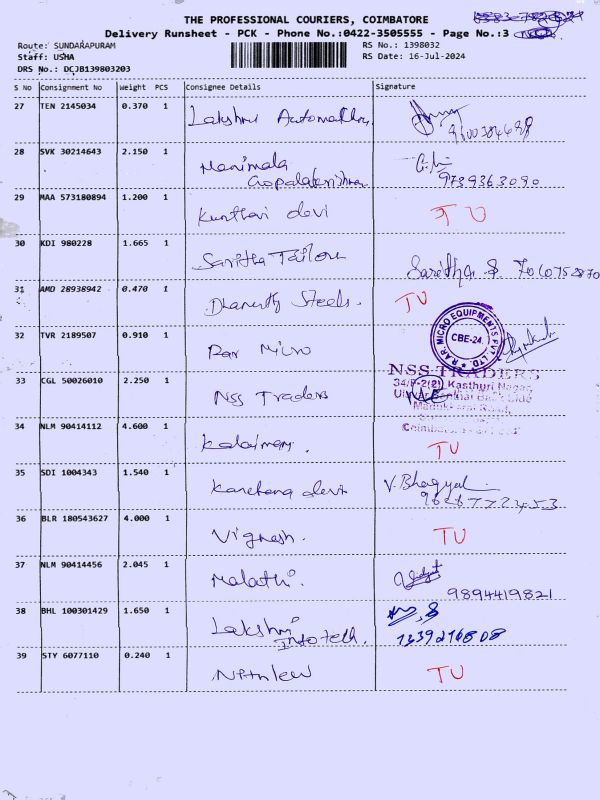 THE PROFESSIONAL COURIERS, COIMBATORE
Delivery Runsheet - PCK - Phone No.:0422-3505555 - Page No.:3
Route: SUNDARAPURAM
RS No.: 1398032
Staff: USHA
RS Date: 16-Jul-2024
DRS No.: DCJB139803203
S No Consignment No Weight PCS Consignee Details Signature
27 TEN 2145034 0.370 1 Lakshmi
28 SVK 30214643 2.150 1 Manimala
Gopalakrishnan
9739363090
29 MAA 573180894 1.200 1 Kunthavi devi TU
30 KDI 980228 1.665 1 Saritha Tailors
Saridha S 7010752870
31 AMD 28938942 0.470 1 Steels. TU
32 TVR 2189507 0.910 1 Rar Micro
R.AR. MICRO EQUIPMENTS PVT. LTD.
CBE-24.
33 CGL 50026010 2.250 1 NSS Traders
NSS TRADERS
34/F-2(2) Kasthuri Nagar,
34 NLM 90414112 4.600 1 TU
35 SDI 1004343 1.540 1 Kanchana devi V. Bhagyal
36 BLR 180543627 4.000 1 Vignesh. TU
37 NLM 90414456 2.045 1 Malathi.
9894419821
38 BHL 100301429 1.650 1 Lakshmi
Infotech.
39 STY 6077110 0.240 1 TU